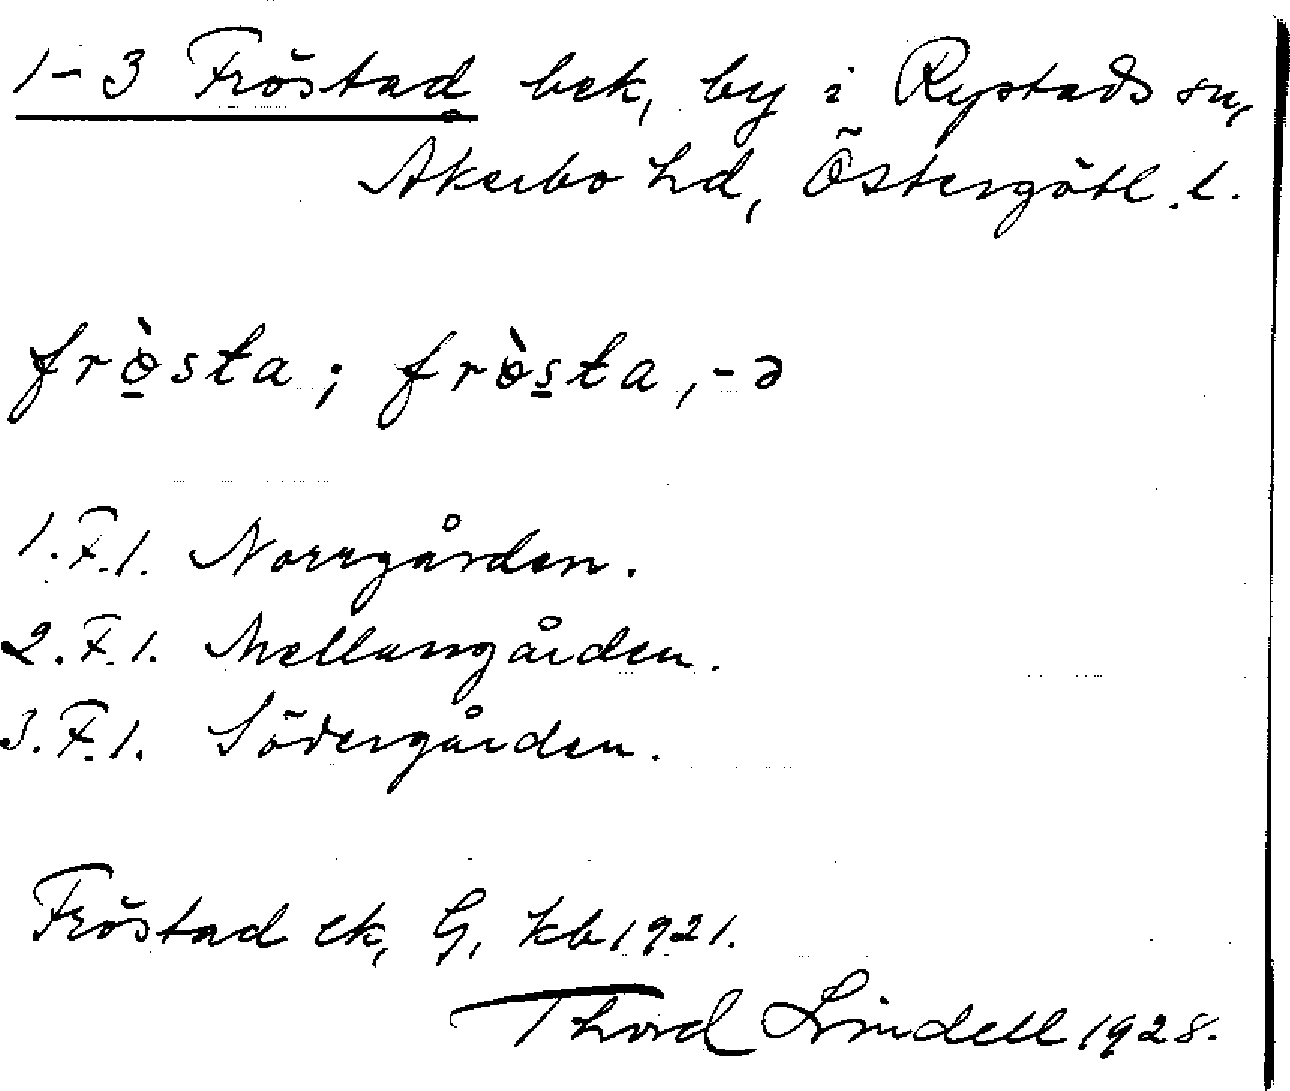 1-3 Fröstad bek, by i Rystads sn,
Åkerbo hd, Östergötl. l.
frø̀sta; frø̀s̲ta, -ə
1. F. 1. Norrgården.
2. F. 1. Mellangården.
3. F. 1. Södergården.
Fröstad ek, G, kb 1921.
Thord Lindell 1928.